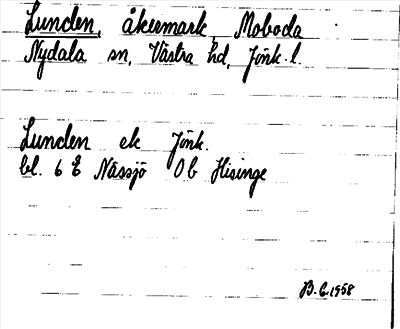 Lunden, åkermark, Moboda
Nydala sn, Västra hd, Jönk. l.
Lunden ek Jönk.
bl. 6 E Nässjö Ob Hisinge
B. E. 1958